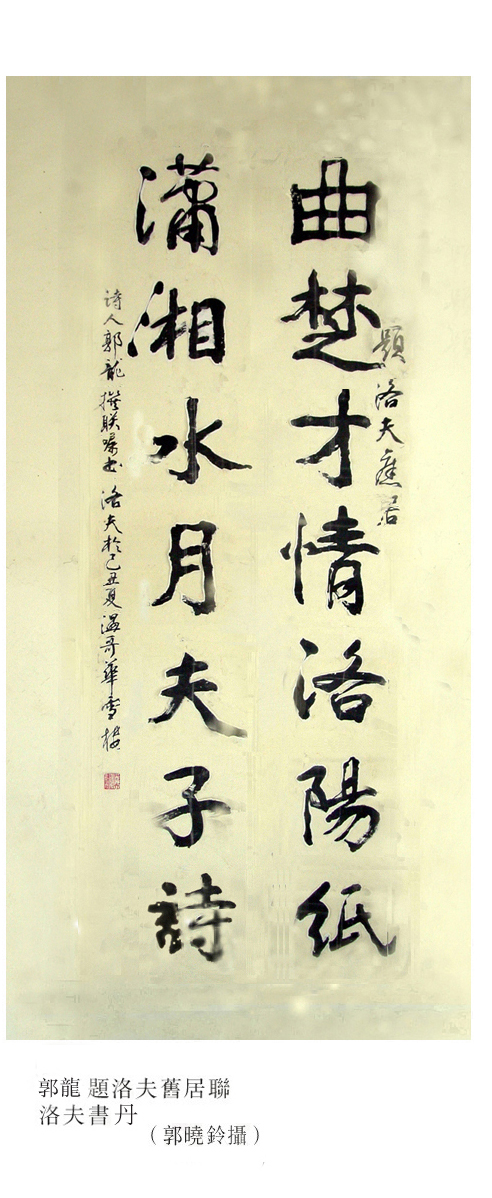 題洛夫舊居
曲楚才情洛陽紙
瀟湘水月夫子詩
詩人郭龍撰联嘱书 洛夫於己丑夏溫哥華雪楼
郭龍 題洛夫舊居聯
洛夫書丹
（郭曉鈴攝）